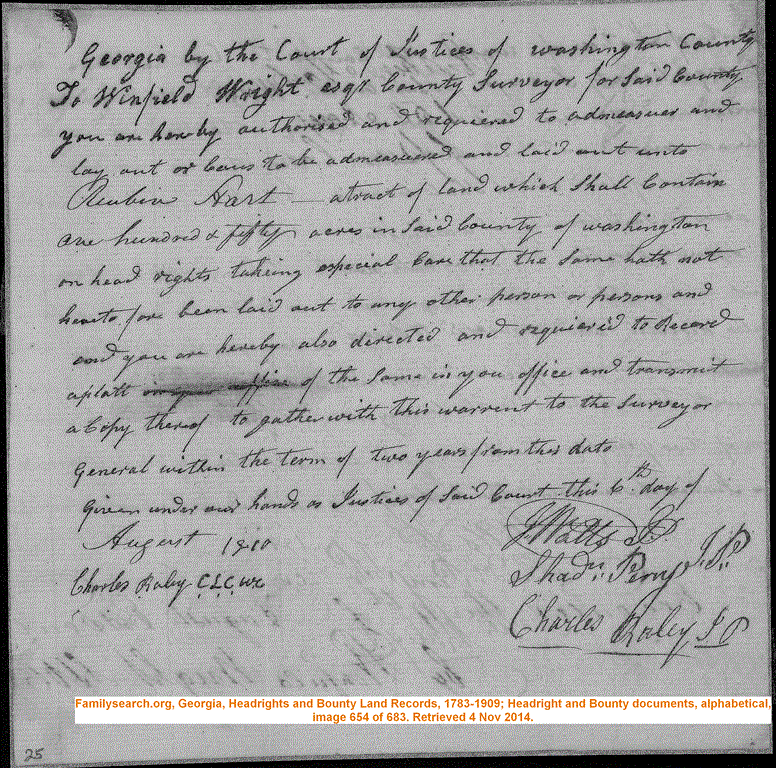 Georgia by the Court of Justices of washington County
To Winfield Wright esqr County Surveyor for Said County
you are hereby authorised and requiered to admeasuer and
lay out or Caus to be admeasuered and laid out unto
Reubin Hart — atract of land which Shall Contain
one hundred & fifty acres in Said County of washington
on head rights takeing especial Care that the Same hath not
hearto fore been laid out to any other person or persons and
and you are hereby also directed and requiered to Record
aplatt in your office of the Same in you office and transmit
a Copy thereof to gather with this warrent to the Surveyor
General within the term of two years from this date
Given under our hands as Justices of Said Court this 6th day of
August 1810
J Watts JP
Shadn. Perry J.P.
Charles Raley C.L.C.W.C
Charles Raley J P
Familysearch.org, Georgia, Headrights and Bounty Land Records, 1783-1909; Headright and Bounty documents, alphabetical,
image 654 of 683. Retrieved 4 Nov 2014.
25